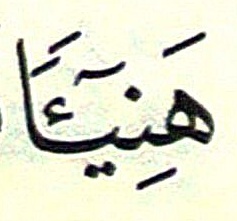 هَنِيٓـًٔا